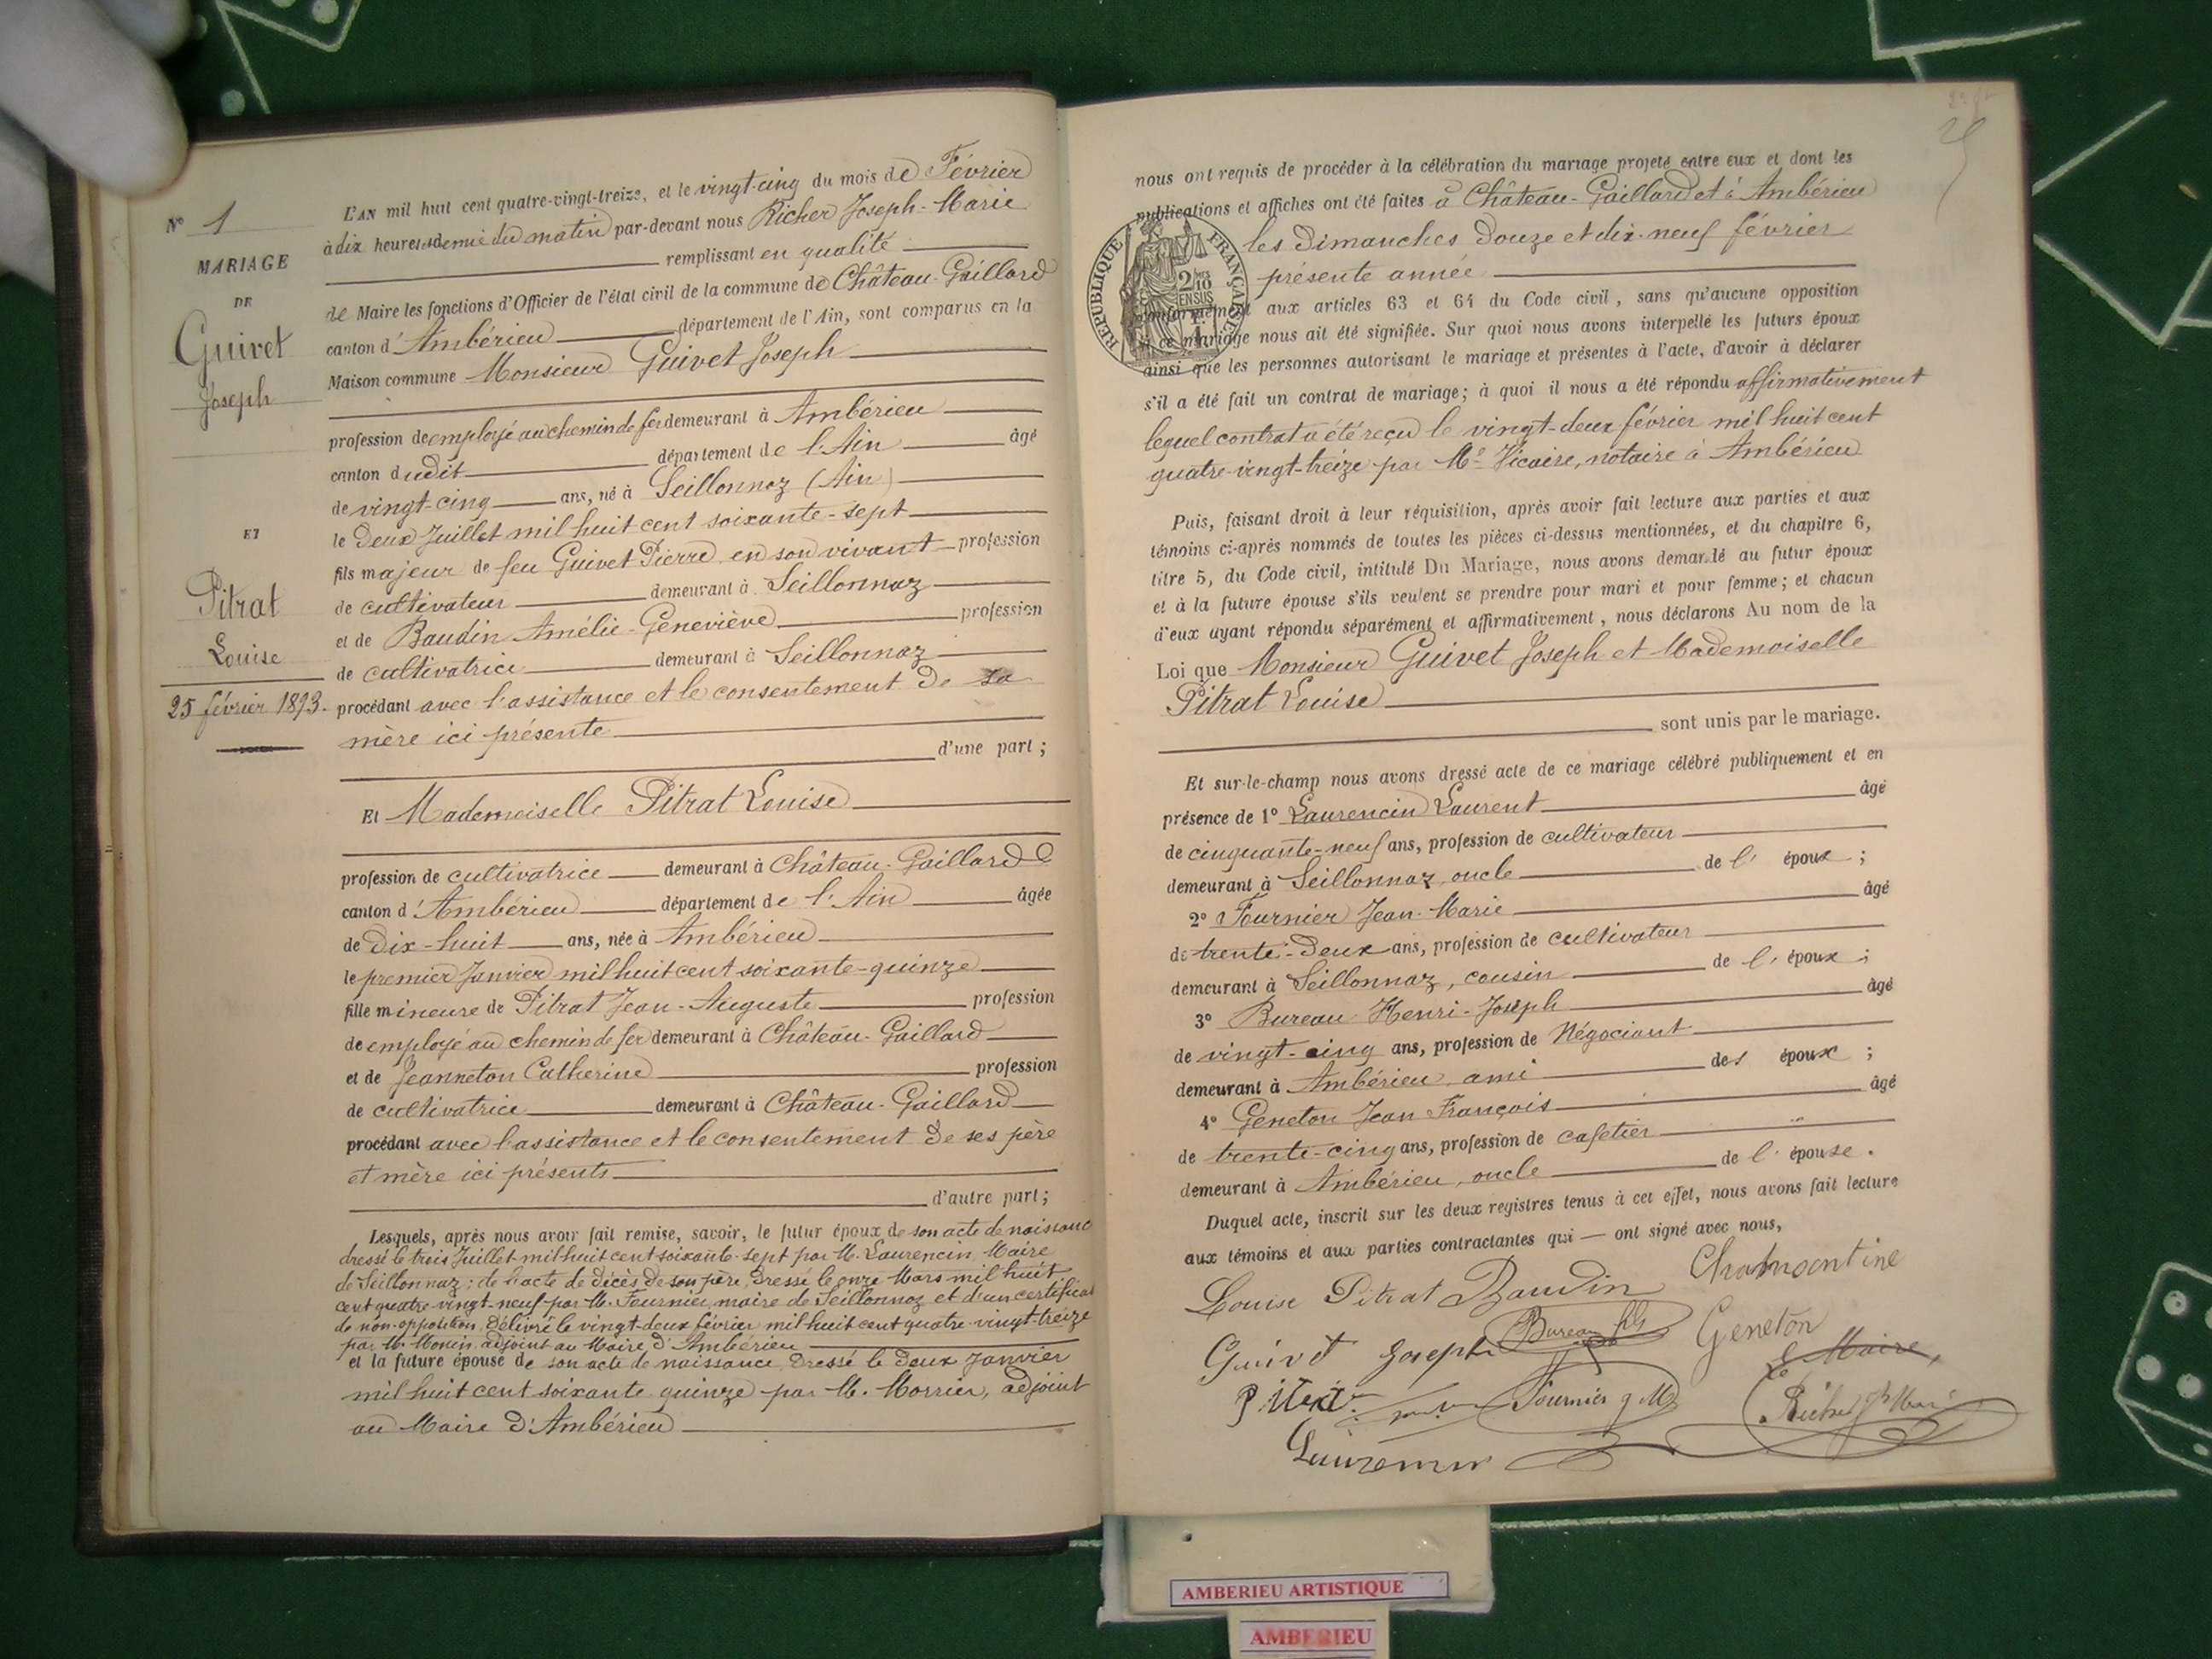 N° 1
MARIAGE
DE
Guivet
Joseph
ET
Pitrat
Louise
25 février 1893.
L'AN mil huit cent quatre-vingt-treize, et le vingt-cinq du mois de Février
à dix heures et demie du matin par-devant nous Richer Joseph-Marie
remplissant en qualité
de Maire les fonctions d'Officier de l'état civil de la commune de Château-Gaillard
canton d'Ambérieu département de l'Ain, sont comparus en la
Maison commune Monsieur Guivet Joseph
profession de employé au chemin de fer demeurant à Ambérieu
canton dudit département de l'Ain âgé
de vingt-cinq ans, né à Seillonnaz (Ain)
le deux Juillet mil huit cent soixante-sept
fils majeur de feu Guivet Pierre en son vivant profession
de cultivateur demeurant à Seillonnaz
et de Baudin Amélie-Geneviève profession
de cultivatrice demeurant à Seillonnaz
procédant avec l'assistance et le consentement de sa
mère ici présente
d'une part ;
Et Mademoiselle Pitrat Louise
profession de cultivatrice demeurant à Château-Gaillard
canton d'Ambérieu département de l'Ain âgée
de dix-huit ans, née à Ambérieu
le premier Janvier mil huit cent soixante-quinze
fille mineure de Pitrat Jean-Auguste profession
de employé au chemin de fer demeurant à Château-Gaillard
et de Jeanneton Catherine profession
de cultivatrice demeurant à Château-Gaillard
procédant avec l'assistance et le consentement de ses père
et mère ici présents
d'autre part ;
Lesquels, après nous avoir fait remise, savoir, le futur époux de son acte de naissance
dressé le trois Juillet mil huit cent soixante-sept par M. Laurencin Maire
de Seillonnaz ; de l'acte de décès de son père, dressé le onze Mars mil huit
cent quatre-vingt-neuf par M. Fournier, maire de Seillonnaz et d'un certificat
de non-opposition, délivré le vingt-deux février mil huit cent quatre-vingt-treize
par M. Monin adjoint au Maire d'Ambérieu
et la future épouse de son acte de naissance, dressé le deux Janvier
mil huit cent soixante quinze par M. Morrier, adjoint
au Maire d'Ambérieu
nous ont requis de procéder à la célébration du mariage projeté entre eux et dont les
publications et affiches ont été faites à Château-Gaillard et à Ambérieu
les dimanches douze et dix-neuf février
présente année
conformément aux articles 63 et 64 du Code civil, sans qu'aucune opposition
à ce mariage nous ait été signifiée. Sur quoi nous avons interpellé les futurs époux
ainsi que les personnes autorisant le mariage et présentes à l'acte, d'avoir à déclarer
s'il a été fait un contrat de mariage ; à quoi il nous a été répondu affirmativement
lequel contrat a été reçu le vingt-deux février mil huit cent
quatre-vingt-treize par Me Vicaire, notaire à Ambérieu
REPUBLIQUE FRANÇAISE
2/10
EN SUS
Puis, faisant droit à leur réquisition, après avoir fait lecture aux parties et aux
témoins ci-après nommés de toutes les pièces ci-dessus mentionnées, et du chapitre 6,
titre 5, du Code civil, intitulé Du Mariage, nous avons demandé au futur époux
et à la future épouse s'ils veulent se prendre pour mari et pour femme ; et chacun
d'eux ayant répondu séparément et affirmativement, nous déclarons Au nom de la
Loi que Monsieur Guivet Joseph et Mademoiselle
Pitrat Louise
sont unis par le mariage.
Et sur-le-champ nous avons dressé acte de ce mariage célébré publiquement et en
présence de 1° Laurencin Laurent âgé
de cinquante-neuf ans, profession de cultivateur
demeurant à Seillonnaz, oncle de l'époux ;
2° Fournier Jean-Marie âgé
de trente-deux ans, profession de cultivateur
demeurant à Seillonnaz, cousin de l'époux ;
3° Bureau Henri-Joseph âgé
de vingt-cinq ans, profession de Négociant
demeurant à Ambérieu ami des époux ;
4° Geneton Jean François âgé
de trente-cinq ans, profession de cafetier
demeurant à Ambérieu, oncle de l'épouse.
Duquel acte, inscrit sur les deux registres tenus à cet effet, nous avons fait lecture
aux témoins et aux parties contractantes qui — ont signé avec nous,
Louise Pitrat Baudin
Guivet Joseph Bureau fils Geneton
Le Maire,
Pitrat Fournier J M
AMBERIEU ARTISTIQUE
AMBERIEU